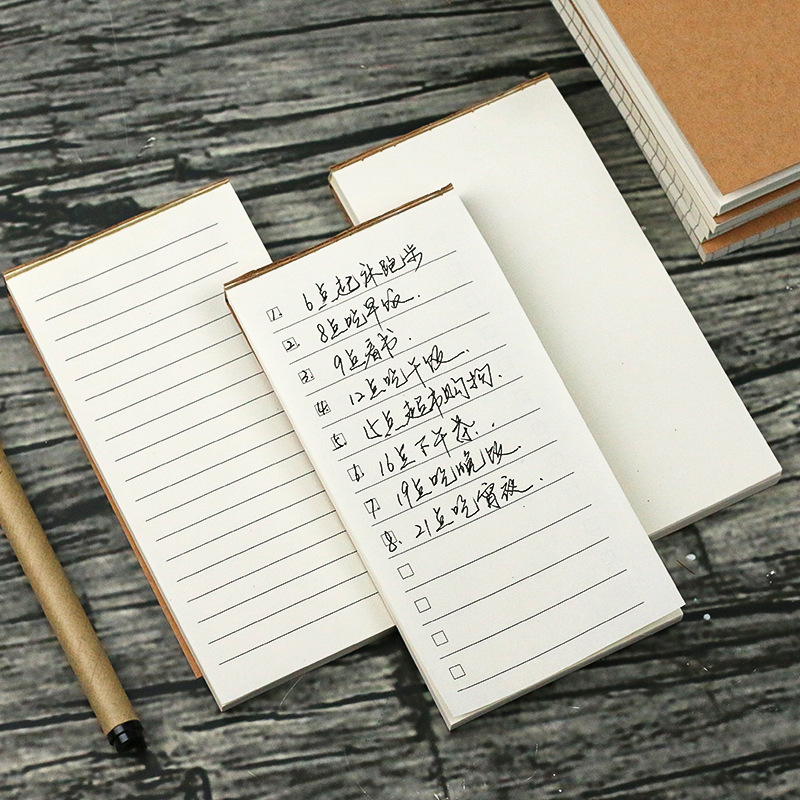 1. 6点起床跑步
2. 8点吃早饭.
3. 9点看书.
4. 12点吃午饭.
5. 15点超市购物.
6. 16点下午茶.
7. 19点吃晚饭.
8. 21点吃宵夜.